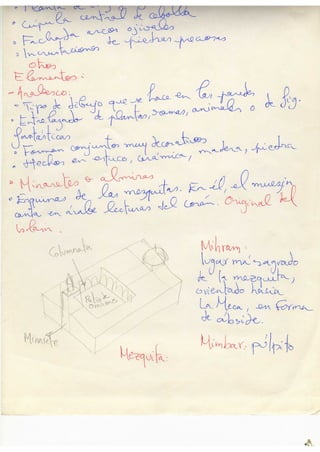 • Planta de
• Cúpula central de cebolla
• Fachada arcos ojivales
• Incrustaciones de piedras preciosas
Otros
Elementos:
- Arabesco:
• Tipo de dibujo que se hace en las paredes
• Entrelazado de plantas, ramas, animales o de fig.
fantásticas
• Forman conjuntos muy decorativos
• Hechos en estuco, cerámica, madera, piedra
• Minaretes o alminar
• Esquinas de las mezquitas. En él, el muesín
canta en árabe lecturas del corán. Original del
Islam.
Columnata
Patio de
Minarete
Mezquita.
Mihram:
lugar más sagrado
de la mezquita,
orientado hacia
La Meca, en forma
de ábside.
Mimbar: púlpito